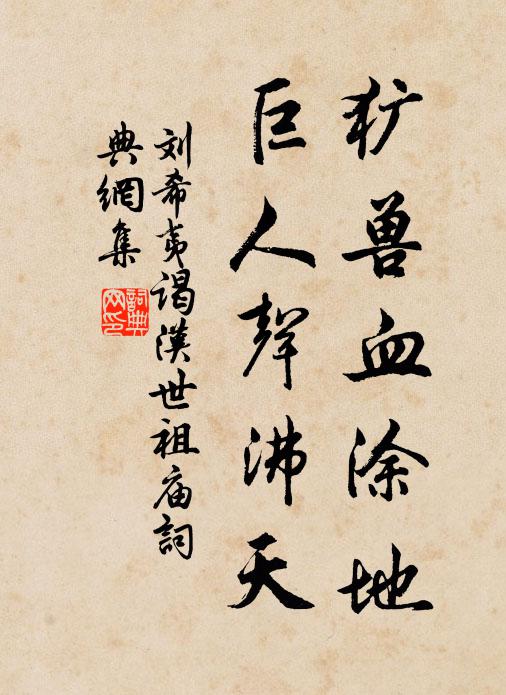 犷兽血涂地
巨人聲沸天
刘希夷谒漢世祖庙詞
典網集
詞典网印